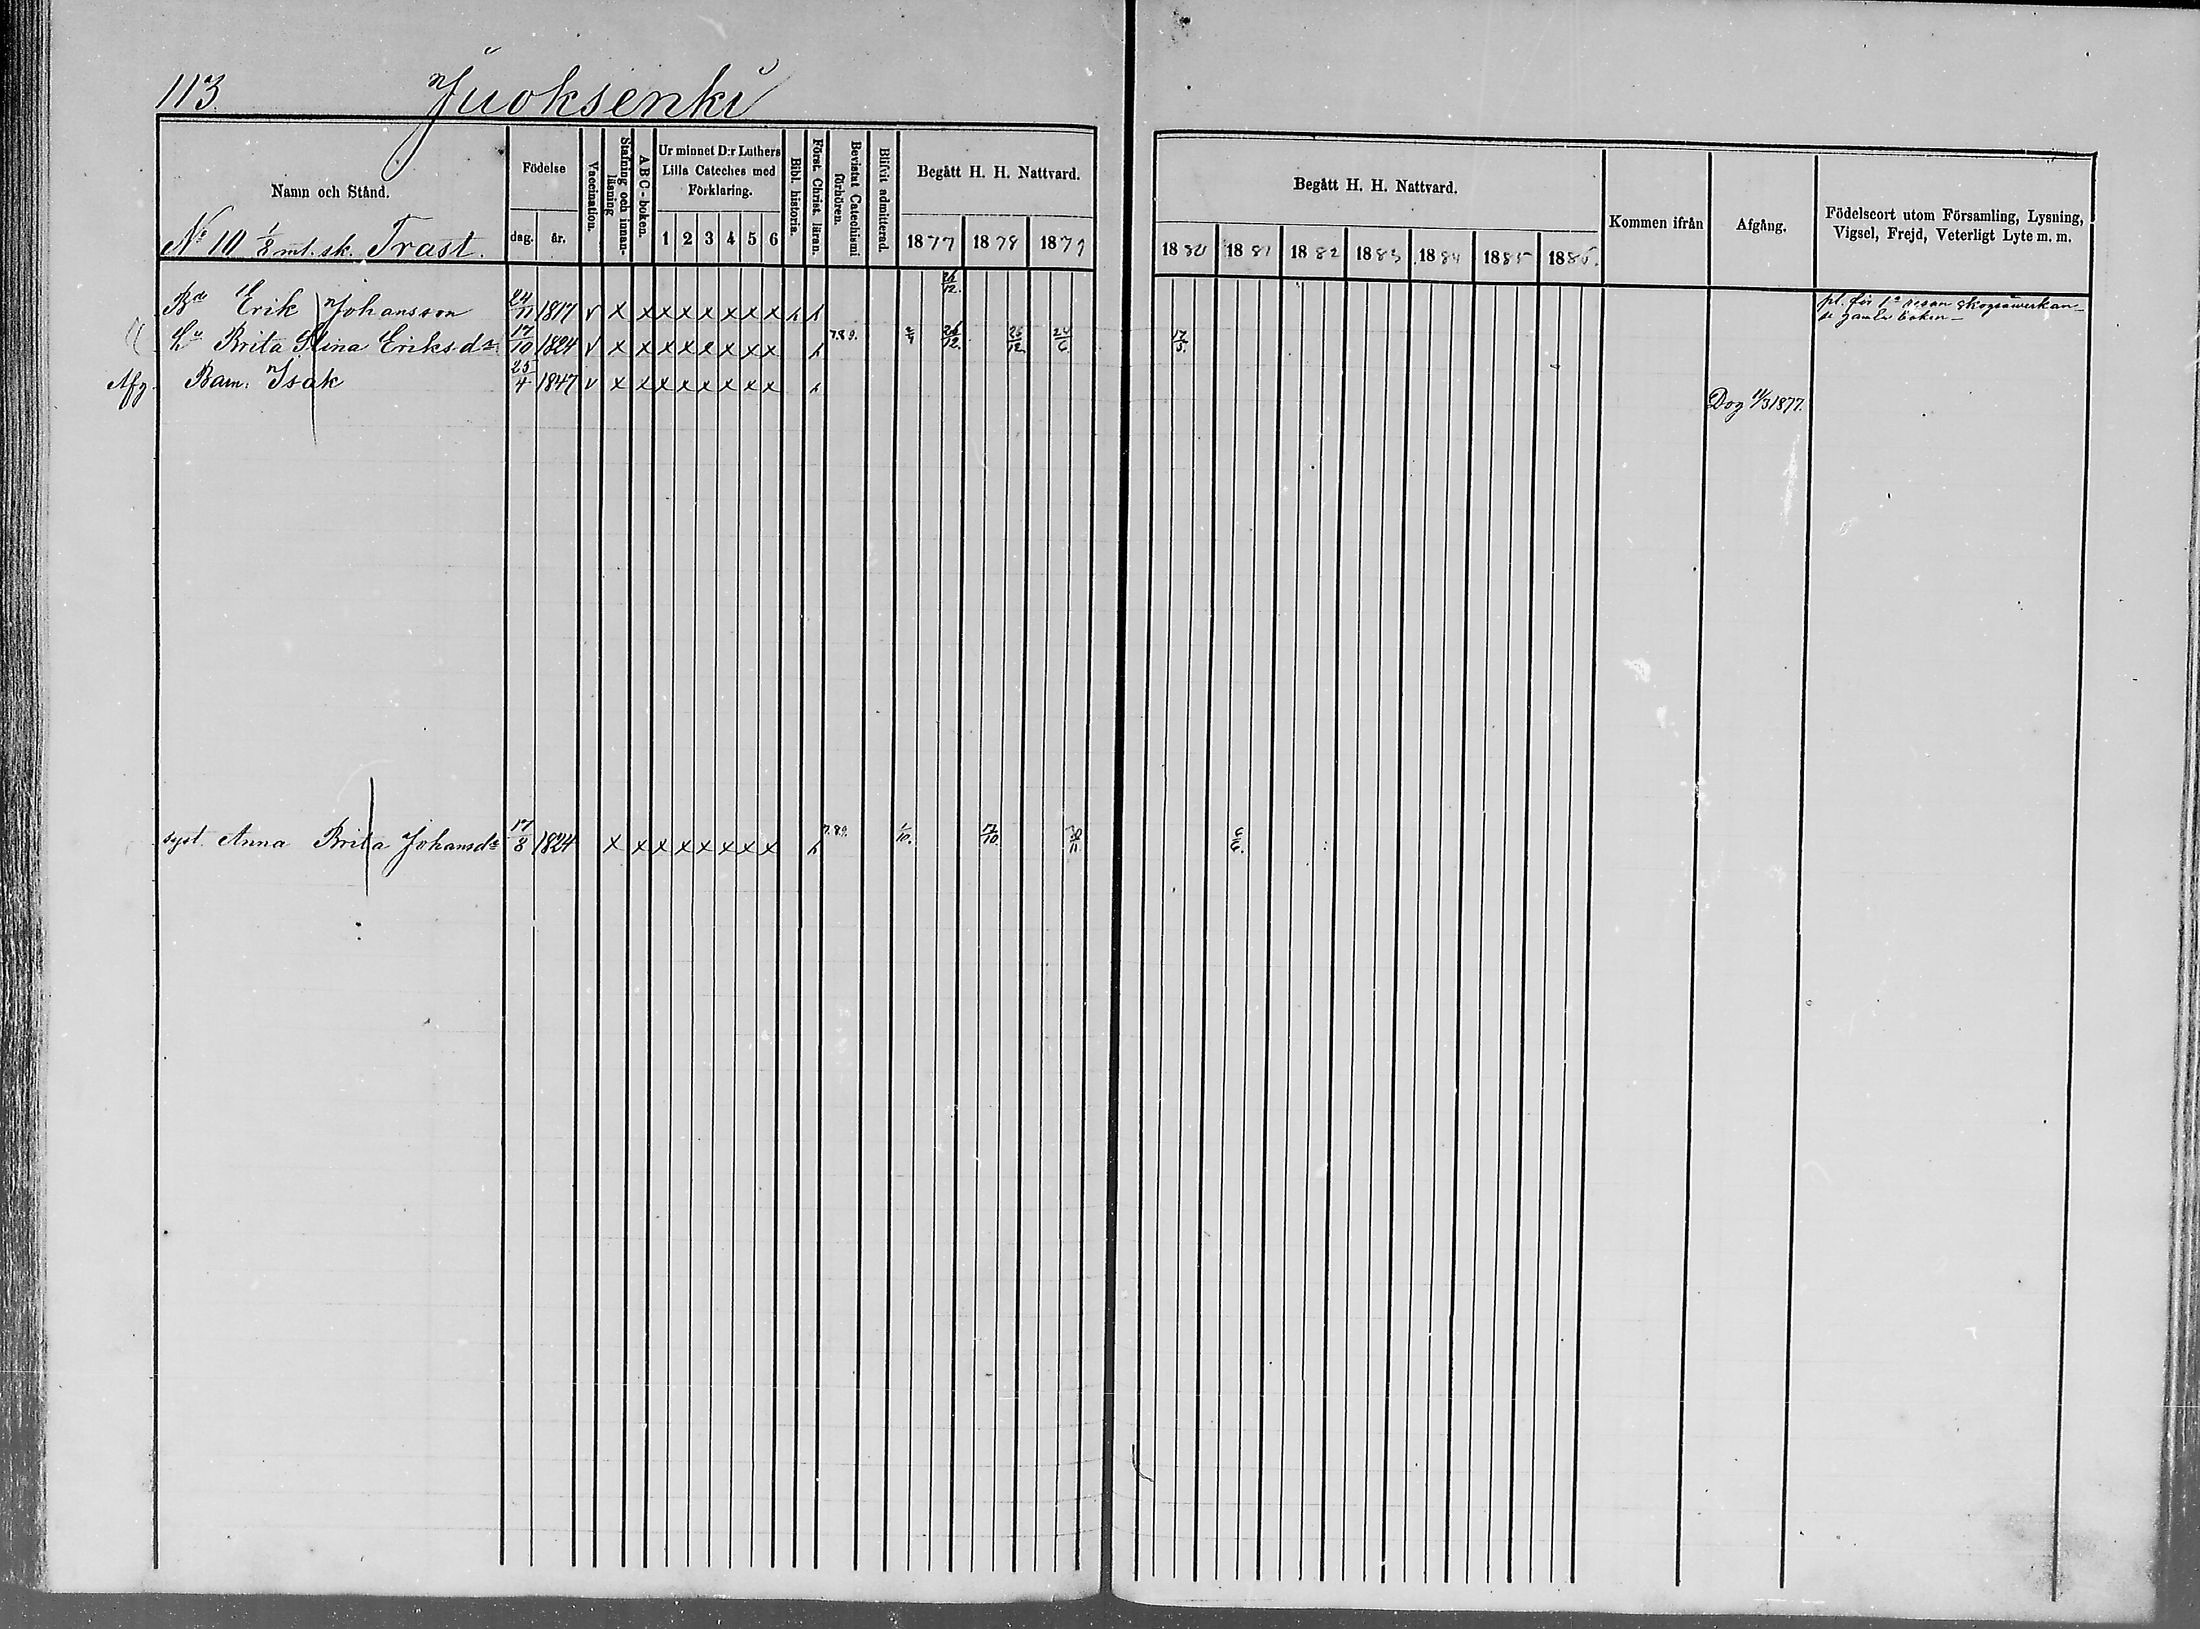 113. Juoksenki
Namn och Stånd.
Födelse
dag.
år.
Vaccination.
Stafning och innan-läsning
ABC-boken.
Ur minnet D:r Luthers Lilla Cateches med Förklaring.
1 2 3 4 5 6
Bibl. historia.
Först. Christ. läran.
Bevistat Catechismi förhören.
Blifvit admitterad.
Begått H. H. Nattvard.
1877 1878 1879
Begått H. H. Nattvard.
1880 1881 1882 1883 1884 1885 1886.
Kommen ifrån
Afgång.
Födelseort utom Församling, Lysning,
Vigsel, Frejd, Veterligt Lyte m. m.
No 10 1/8 mt. sk. Trast.
Bd Erik Johansson 24/11 1817 v x x x x x x x x 26/12. pl. för 1a resan skogsåverkan
se gamla boken
Hu Brita Stina Eriksdr 17/10 1824 v x x x x x x x x 7.8.9. 26/12. 26/12. 24/6. 17/5.
Afg. Barn. Isak 25/4 1847 v x x x x x x x x
Dog 11/3 1877.
syst. Anna Brita Johansdr 17/8 1824 x x x x x x x x 7.8.9. 1/10. 17/10. 30/11. 6/6.